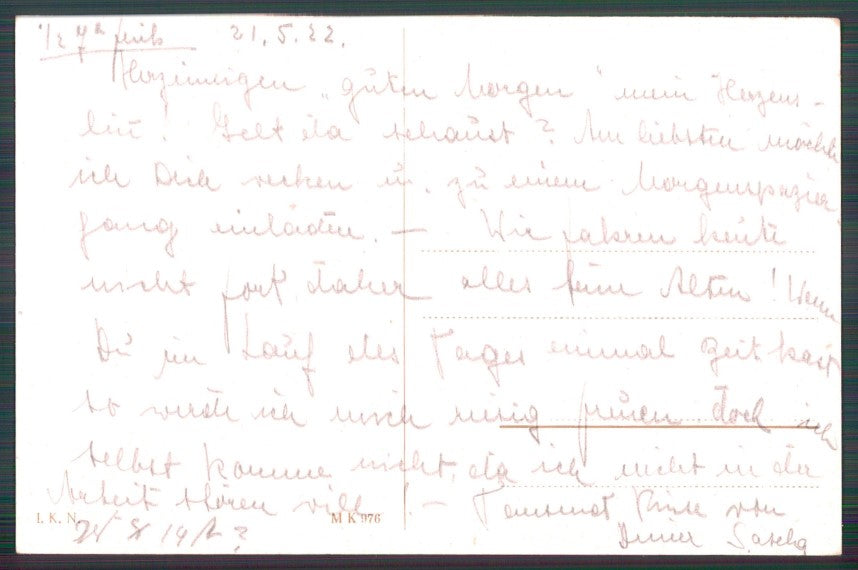 1/2 7 h früh 21.5.22.
Herzinnigen „guten Morgen" mein Herzens-
lin! Gelt da schaust? Am liebsten möchte
ich Dich wecken u. zu einem Morgenspazier
gang einladen. — Wir fahren heute
nicht fort, daher alles beim Alten! Wenn
Du im Lauf des Tages einmal Zeit hast
so werde ich mich riesig freuen doch ich
selbst komme nicht, da ich nicht in der
Arbeit stören will! — Tausend von
I. K. N. M K 976
Sascha